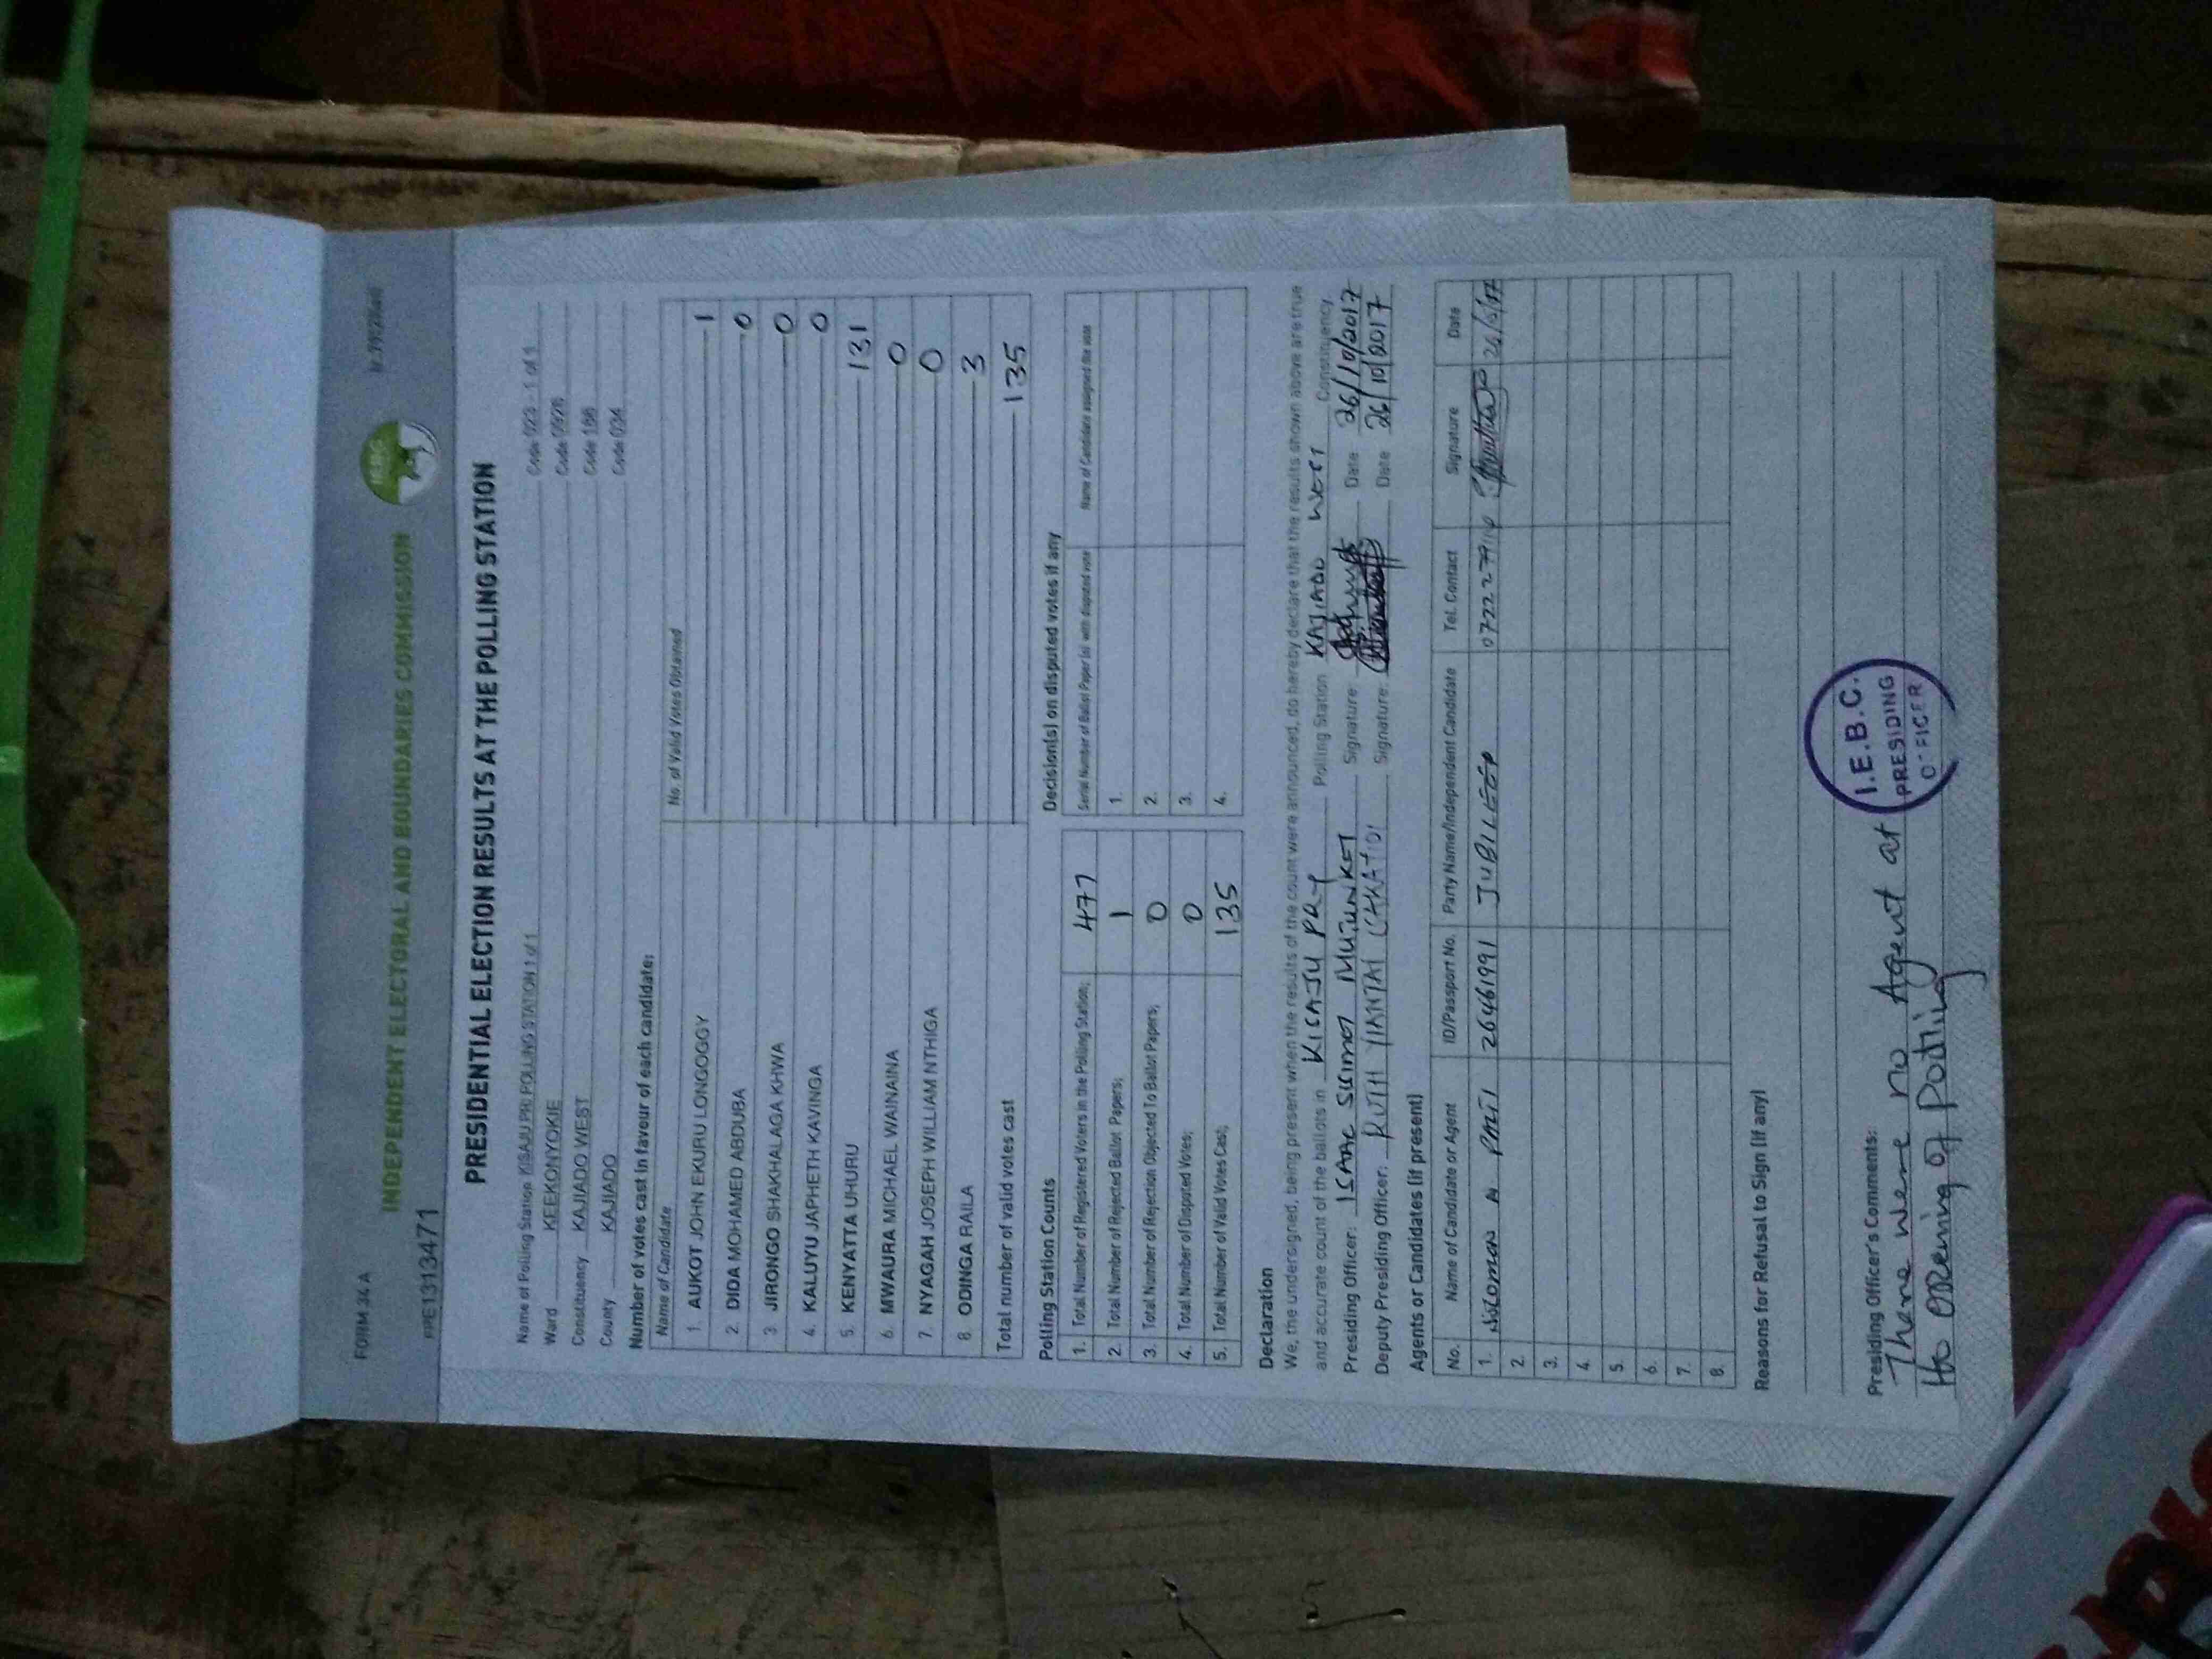 FORM 34 A
INDEPENDENT ELECTORAL AND BOUNDARIES COMMISSION
PRE1313471
PRESIDENTIAL ELECTION RESULTS AT THE POLLING STATION
Name of Polling Station KISAJU PRI POLLING STATION 1 of 1 Code 023 - 1 of 1
Ward KEEKONYOKIE Code 0926
Constituency KAJIADO WEST Code 186
County KAJIADO Code 034
Number of votes cast in favour of each candidate:
Name of Candidate No. of Valid Votes Obtained
1. AUKOT JOHN EKURU LONGOGGY 1
2. DIDA MOHAMED ABDUBA 0
3. JIRONGO SHAKHALAGA KHWA 0
4. KALUYU JAPHETH KAVINGA 0
5. KENYATTA UHURU 131
6. MWAURA MICHAEL WAINAINA 0
7. NYAGAH JOSEPH WILLIAM NTHIGA 0
8. ODINGA RAILA 3
Total number of valid votes cast 135
Polling Station Counts
1. Total Number of Registered Voters in the Polling Station; 477
2. Total Number of Rejected Ballot Papers; 1
3. Total Number of Rejection Objected To Ballot Papers; 0
4. Total Number of Disputed Votes; 0
5. Total Number of Valid Votes Cast; 135
Decision(s) on disputed votes if any
Serial Number of Ballot Paper (s) with disputed vote Name of Candidate assigned the vote
1.
2.
3.
4.
Declaration
We, the undersigned, being present when the results of the count were announced, do hereby declare that the results shown above are true
and accurate count of the ballots in KISAJU PRY Polling Station KAJIADO WEST Constituency.
Presiding Officer: ISAAC Signature: Date 26/10/2017
Deputy Presiding Officer: RUTH YIANTAI Signature: Date 26/10/2017
Agents or Candidates (if present)
No. Name of Candidate or Agent ID/Passport No. Party Name/Independent Candidate Tel. Contact Signature Date
1. Solomon N 26461991 JUBILEE
2.
3.
4.
5.
6.
7.
8.
Reasons for Refusal to Sign (if any)
Presiding Officer's Comments:
There were no Agent at
the opening of Polling
I.E.B.C.
PRESIDING
OFFICER